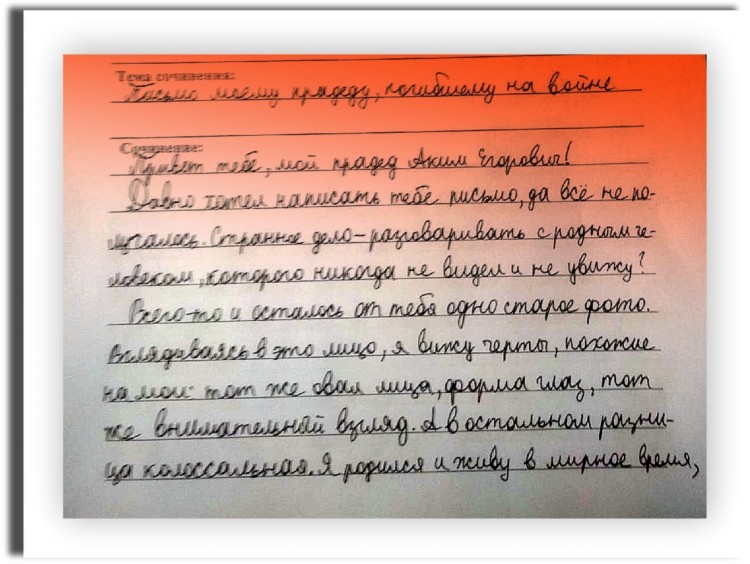 Тема сочинения:
Письмо моему прадеду, погибшему на войне
Сочинение:
Привет тебе, мой прадед Аким Егорович!
Давно хотел написать тебе письмо, да всё не по-
лучалось. Странное дело – разговаривать с родным че-
ловеком, которого никогда не видел и не увижу?
Всего-то и осталось от тебя одно старое фото.
Вглядываясь в это лицо, я вижу черты, похожие
на мои: тот же овал лица, форма глаз, тот
же внимательный взгляд. А в остальном разни-
ца колоссальная. Я родился и живу в мирное время,